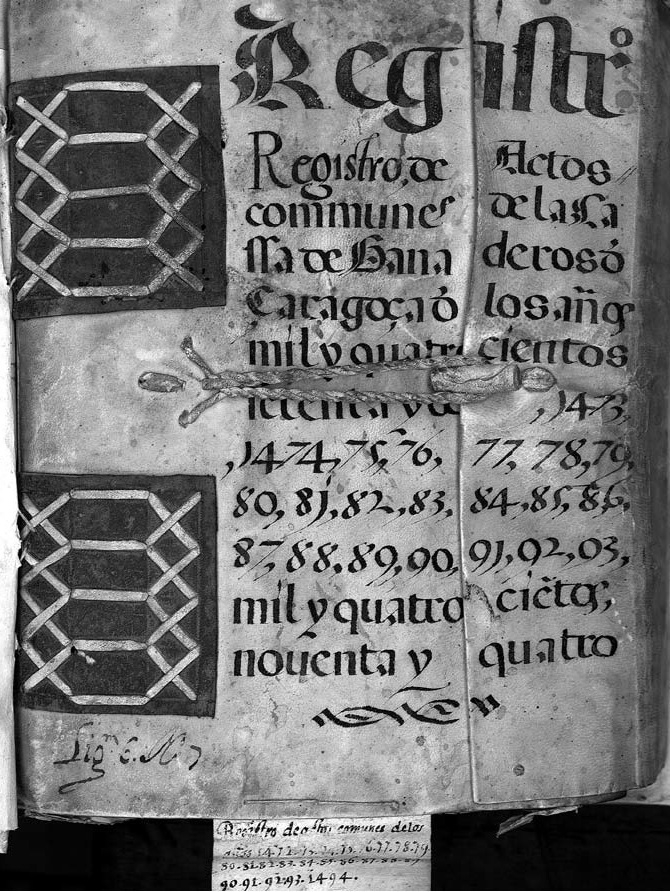 Registro
Registro, de Actos
communes de la Ca
ssa de Gana deros ð
Çaragoça ð los años
mil y quatro cientos
setenta y dos, 1473,
, 1474, 75, 76, 77, 78, 79,
80, 81, 82, 83, 84, 85, 86,
87, 88, 89, 90, 91, 92, 93,
mil y quatro ciẽtos,
nouenta y quatro
Lig.ᵐ 6. N.º 7
Registro de actos comunes de los
80-81-82-83-84-85-86-87-88-89
90-91-92-93-1494.